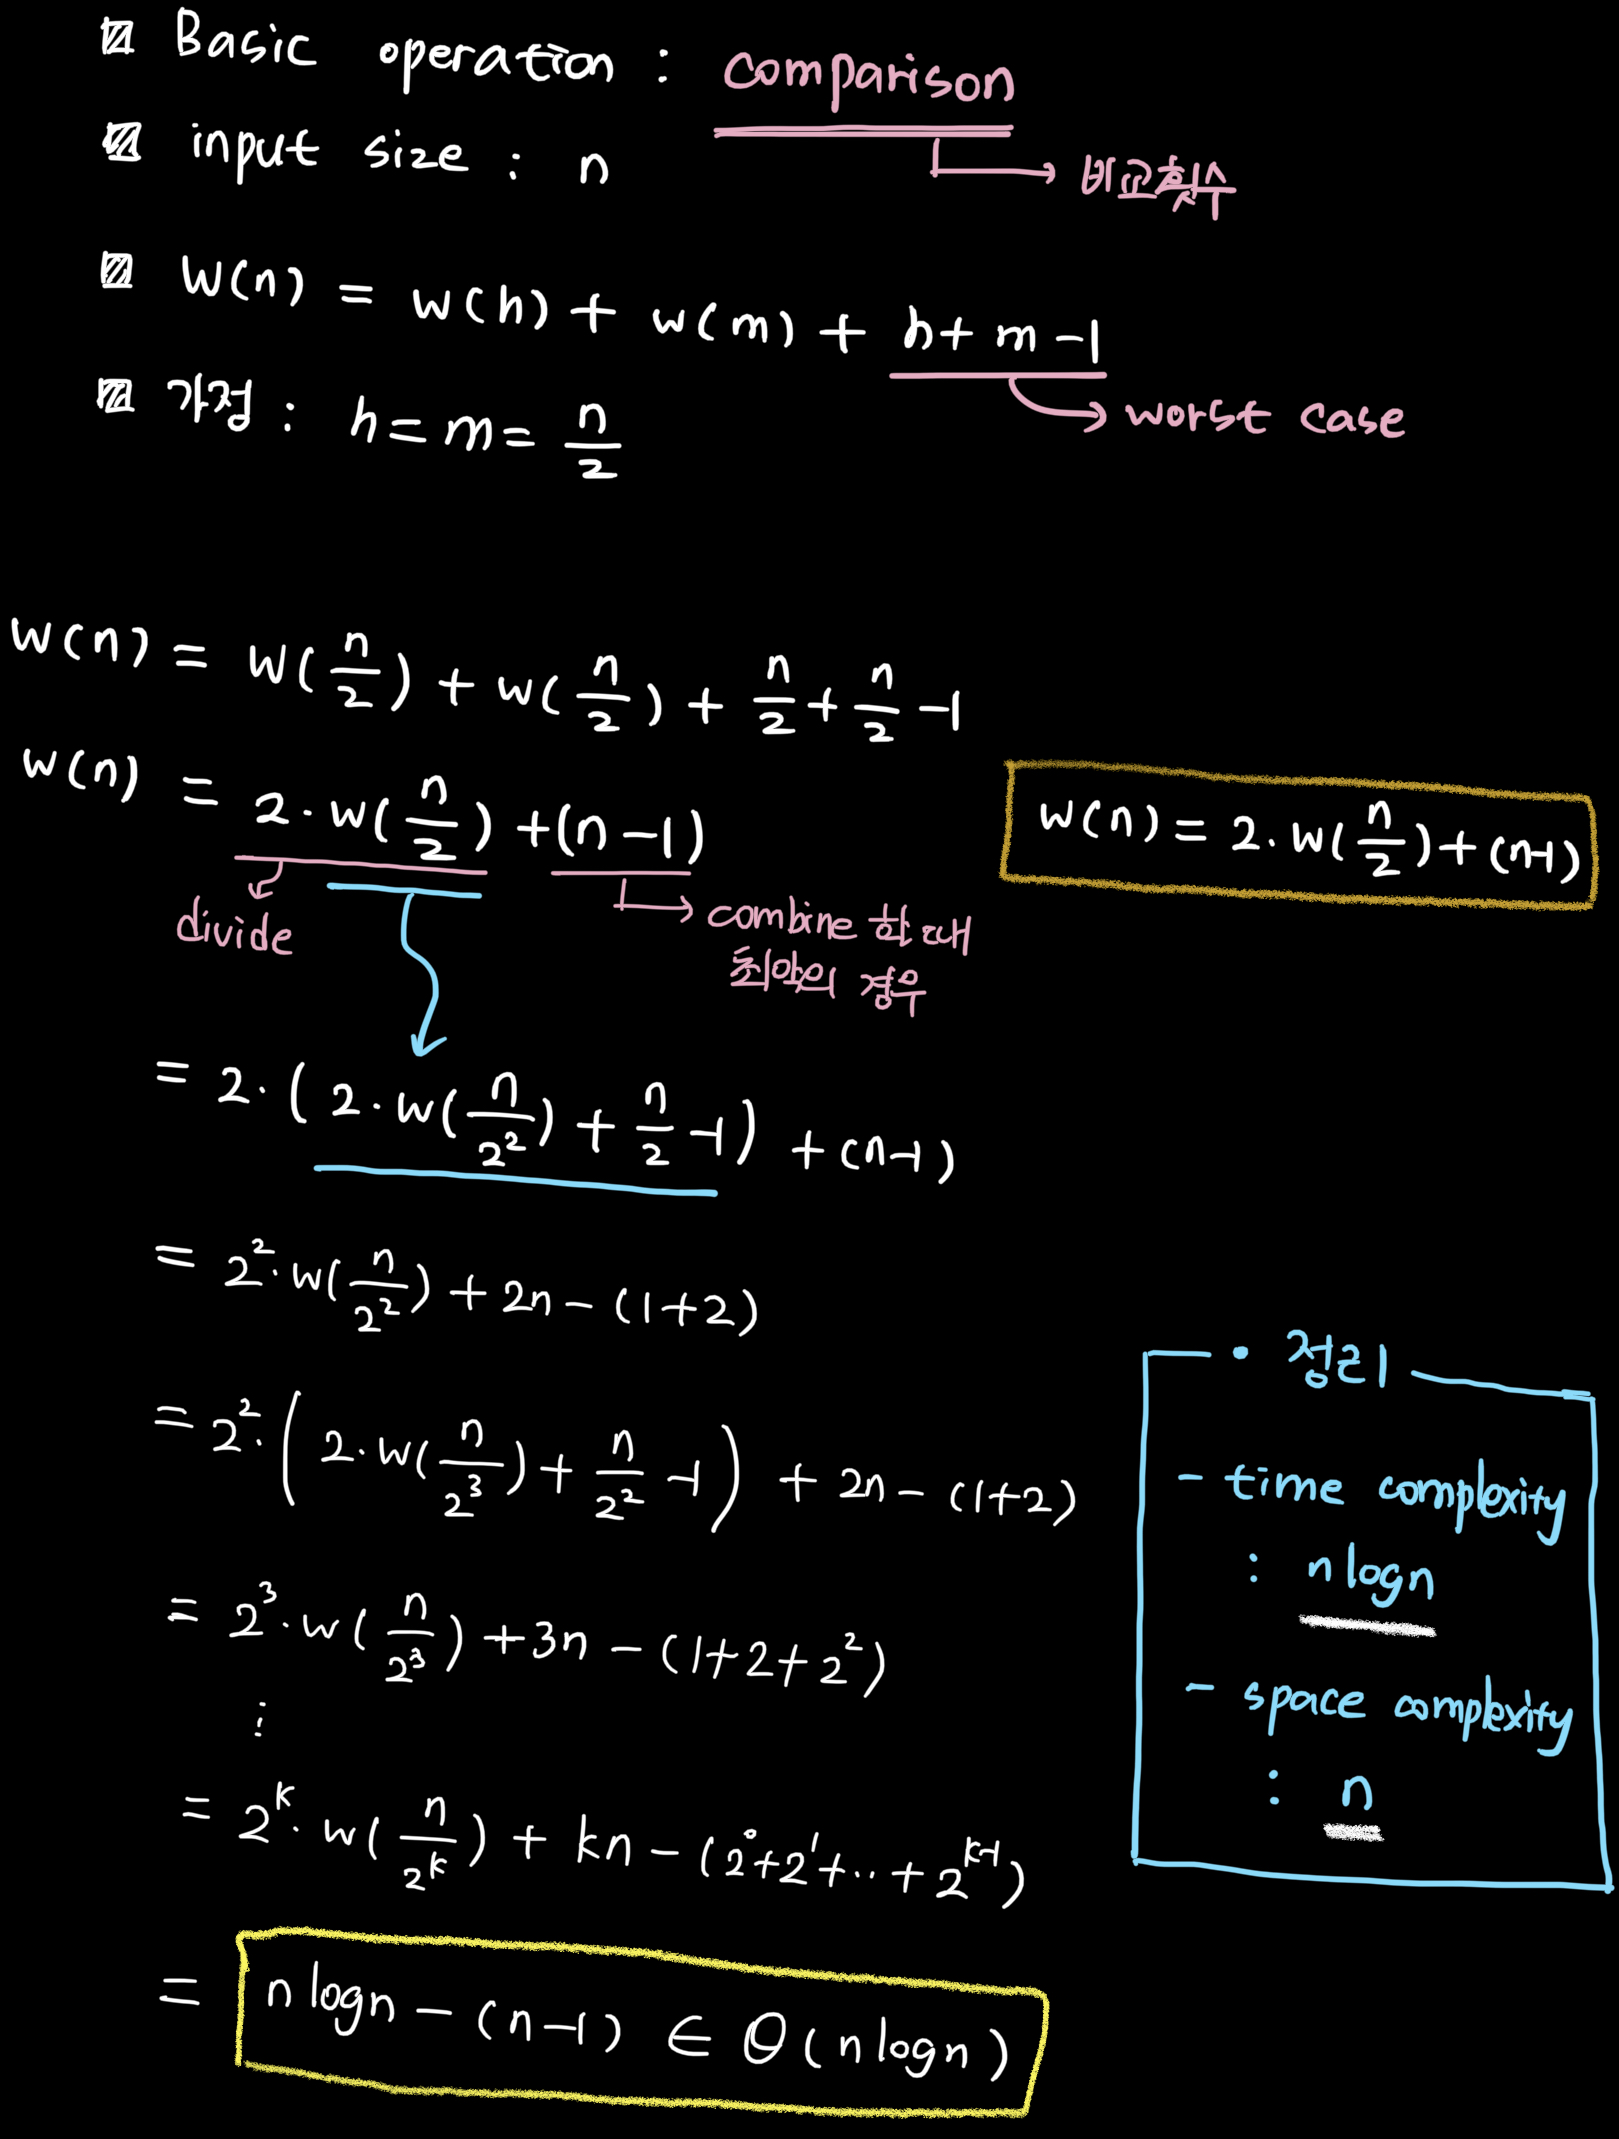 Basic operation : comparison
input size : n
→ 비교횟수
W(n) = w(h) + w(m) + h + m - 1
→ worst case
가정 : h = m = n/2
W(n) = W(n/2) + w(n/2) + n/2 + n/2 - 1
W(n) = 2 · w(n/2) + (n - 1)
W(n) = 2 · W(n/2) + (n-1)
divide
→ combine 할 때
최악의 경우
= 2 · ( 2 · w(n/2²) + n/2 - 1 ) + (n-1)
= 2² · w(n/2²) + 2n - (1+2)
= 2² · ( 2 · w(n/2³) + n/2² - 1 ) + 2n - (1+2)
= 2³ · w(n/2³) + 3n - (1+2+2²)
⋮
= 2^k · w(n/2^k) + kn - (2⁰+2¹+··+2^(k-1))
= n logn - (n-1) ∈ Θ(n logn)
• 정리
- time complexity
: n logn
- space complexity
: n